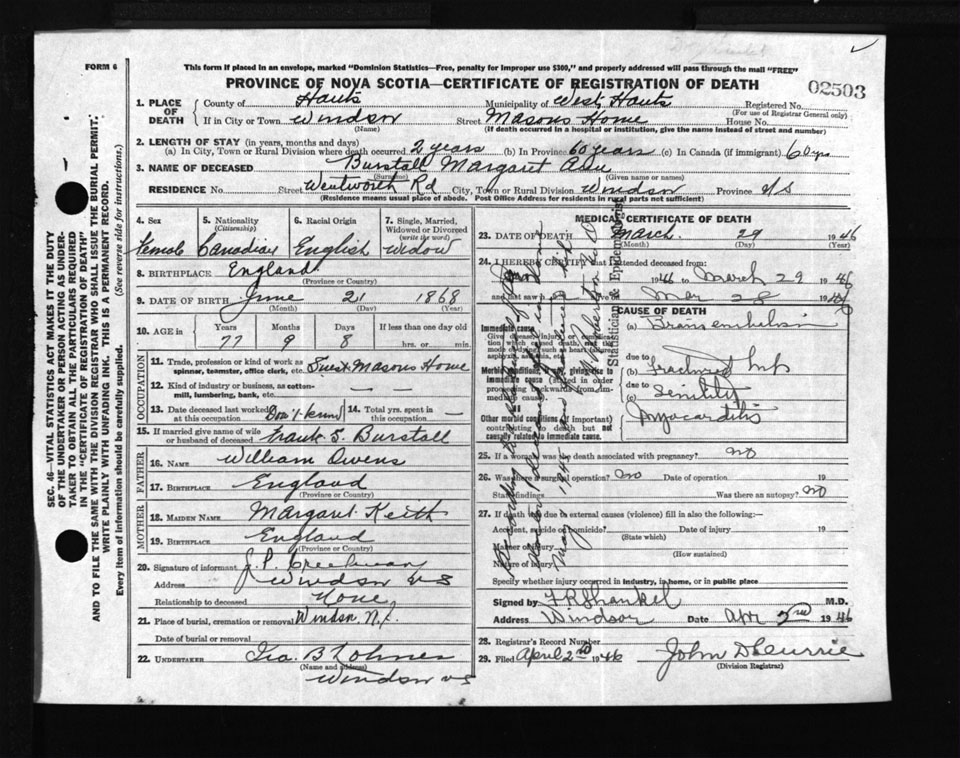 FORM 6
This form if placed in an envelope, marked "Dominion Statistics—Free, penalty for improper use $300," and properly addressed will pass through the mail "FREE"
PROVINCE OF NOVA SCOTIA—CERTIFICATE OF REGISTRATION OF DEATH
02503
1. PLACE OF DEATH
County of Hants Municipality of West Hants Registered No.
(For use of Registrar General only)
If in City or Town Windsor Street Masons Home House No.
(Name) (If death occurred in a hospital or institution, give the name instead of street and number)
2. LENGTH OF STAY (in years, months and days)
(a) In City, Town or Rural Division where death occurred 2 years (b) In Province 60 years (c) In Canada (if immigrant) 60 yrs
3. NAME OF DECEASED Burstall Margaret
(Surname) (Given name or names)
RESIDENCE No. Street Wentworth Rd City, Town or Rural Division Windsor Province N/S
(Residence means usual place of abode. Post Office Address for residents in rural parts not sufficient)
4. Sex 5. Nationality (Citizenship) 6. Racial Origin 7. Single, Married, Widowed or Divorced (write the word)
Female Canadian English Widow
8. BIRTHPLACE England
(Province or Country)
9. DATE OF BIRTH June 21 1868
(Month) (Day) (Year)
10. AGE in Years Months Days If less than one day old
77 9 8 hrs. or min.
OCCUPATION
11. Trade, profession or kind of work as spinner, teamster, office clerk, etc. Guest Masons Home
12. Kind of industry or business, as cotton-mill, lumbering, bank, etc. —
13. Date deceased last worked at this occupation Don't know 14. Total yrs. spent in this occupation —
15. If married give name of wife or husband of deceased Frank S. Burstall
FATHER
16. NAME William Owens
17. BIRTHPLACE England
(Province or Country)
MOTHER
18. MAIDEN NAME Margaret Keith
19. BIRTHPLACE England
(Province or Country)
20. Signature of informant J. P. Creelman
Address Windsor N S
Relationship to deceased None
21. Place of burial, cremation or removal Windsor, N.S.
Date of burial or removal
22. UNDERTAKER Geo. B Lohnes
(Name and address)
Windsor N S
MEDICAL CERTIFICATE OF DEATH
23. DATE OF DEATH March 29 1946
(Month) (Day) (Year)
24. I HEREBY CERTIFY that I attended deceased from:
1946 to March 29 1946
and last saw h alive on Mar 28 1946
CAUSE OF DEATH
Immediate cause
(a)
due to
(b) Fractured hip
due to
(c) Senility
Myocarditis
Morbid conditions, if any, giving rise to immediate cause (stated in order proceeding backwards from immediate cause)
Other morbid conditions (if important) contributing to death but not causally related to immediate cause.
25. If a woman, was the death associated with pregnancy? no
26. Was there a surgical operation? no Date of operation 19
State findings Was there an autopsy? no
27. If death was due to external causes (violence) fill in also the following:—
Accident, suicide or homicide? Date of injury 19
(State which)
Manner of injury
(How sustained)
Nature of injury
Specify whether injury occurred in industry, in home, or in public place
Signed by F R Shankel M.D.
Address Windsor Date Apr 2nd 1946
28. Registrar's Record Number
29. Filed April 2nd 1946 John D Currie
(Division Registrar)
SEC. 46—VITAL STATISTICS ACT MAKES IT THE DUTY
OF THE UNDERTAKER OR PERSON ACTING AS UNDER-
TAKER TO OBTAIN ALL THE PARTICULARS REQUIRED
IN THE "CERTIFICATE OF REGISTRATION OF DEATH"
AND TO FILE THE SAME WITH THE DIVISION REGISTRAR WHO SHALL ISSUE THE BURIAL PERMIT.
WRITE PLAINLY WITH UNFADING INK. THIS IS A PERMANENT RECORD.
Every item of information should be carefully supplied. (See reverse side for instructions.)